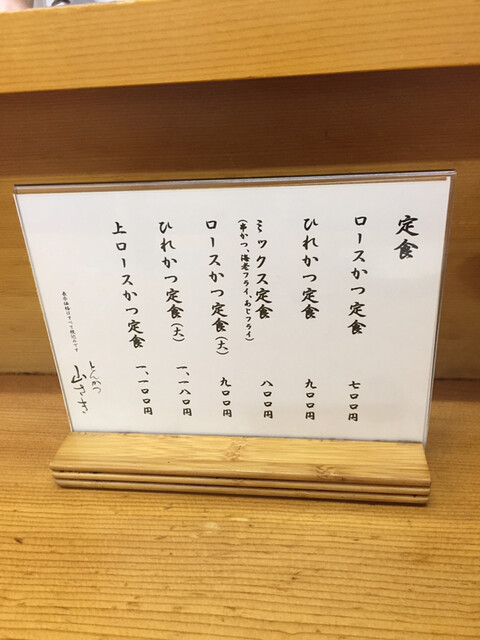 定食
ロースかつ定食 七〇〇円
ひれかつ定食 九〇〇円
ミックス定食 八〇〇円
(串かつ、海老フライ、あじフライ)
ロースかつ定食(大) 九〇〇円
ひれかつ定食(大) 一、一八〇円
上ロースかつ定食 一、一〇〇円
表示価格はすべて税込みです
とんかつ
山さき